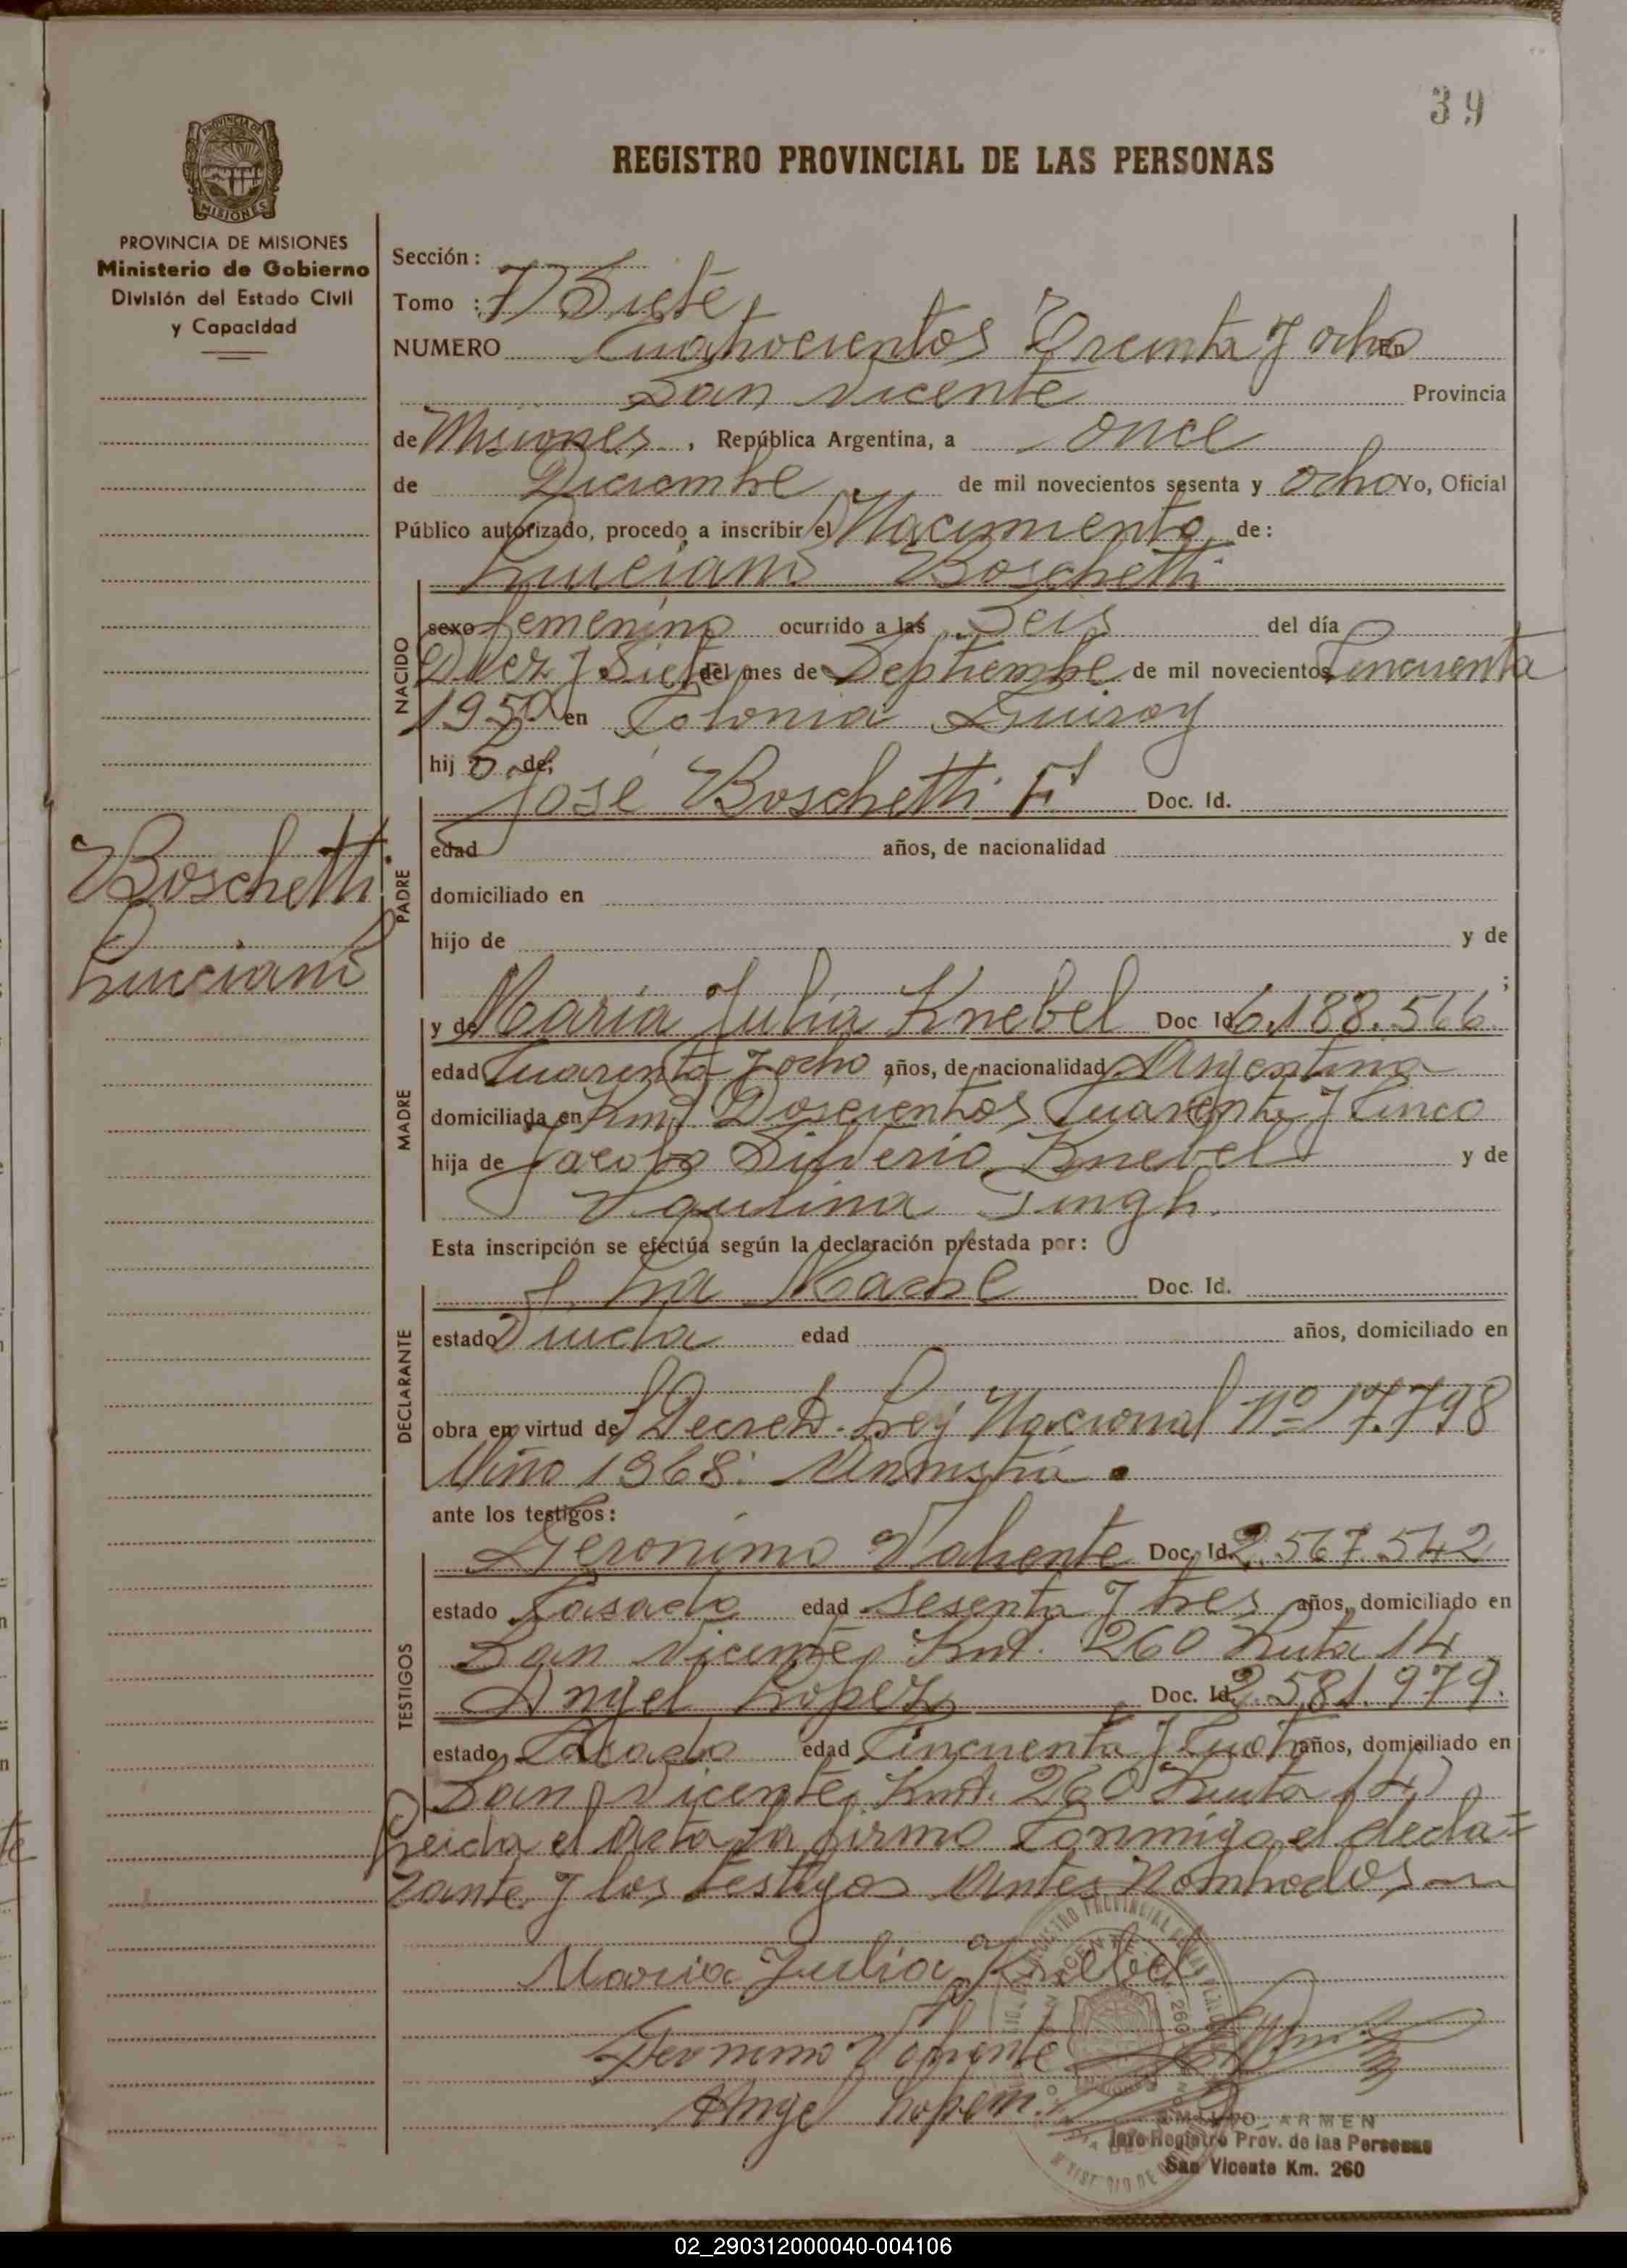 39
REGISTRO PROVINCIAL DE LAS PERSONAS
PROVINCIA DE
MISIONES
PROVINCIA DE MISIONES
Ministerio de Gobierno
División del Estado Civil
y Capacidad
Sección:
Tomo : 7) Siete
NUMERO Cuatrocientos Treinta y ocho En
San Vicente Provincia
de Misiones, República Argentina, a once
de Diciembre de mil novecientos sesenta y ocho Yo, Oficial
Público autorizado, procedo a inscribir el Nacimiento de:
Luciano Boschetti
NACIDO
sexo femenino ocurrido a las Seis del día
Diez y Siete del mes de Septiembre de mil novecientos Cincuenta
1950 en Colonia
hij o de:
PADRE
José Boschetti Doc. Id.
edad años, de nacionalidad
domiciliado en
hijo de y de
;
Boschetti
Luciano
MADRE
y de María Julia Knebel Doc Id 6.188.566
edad Cuarenta y ocho años, de nacionalidad Argentina
domiciliada en Kmt Doscientos Cuarenta y Cinco
hija de Jacobo Silverio Knebel y de
Paulina
Esta inscripción se efectúa según la declaración prestada por:
DECLARANTE
La Madre Doc. Id.
estado Viuda edad años, domiciliado en
obra en virtud de Decreto-Ley Nacional Nº 17.798
Año 1968: Amnistia.
ante los testigos:
TESTIGOS
Geronimo Valiente Doc. Id. 2.567.542
estado Casado edad Sesenta y tres años, domiciliado en
San Vicente, Kmt. 260 Ruta 14
Angel Lopez Doc. Id. 2.581.979.
estado Casado edad Cincuenta y Cuatro años, domiciliado en
San Vicente, Kmt. 260 Ruta 14)
Leida el Acta la firma Conmigo el decla=
rante y los testigos Antes Nombrados
Maria Julia Knebel
Geronimo Valiente
Angel Lopez
ARMEN
Jefe Registro Prov. de las Personas
San Vicente Km. 260
02_290312000040-004106